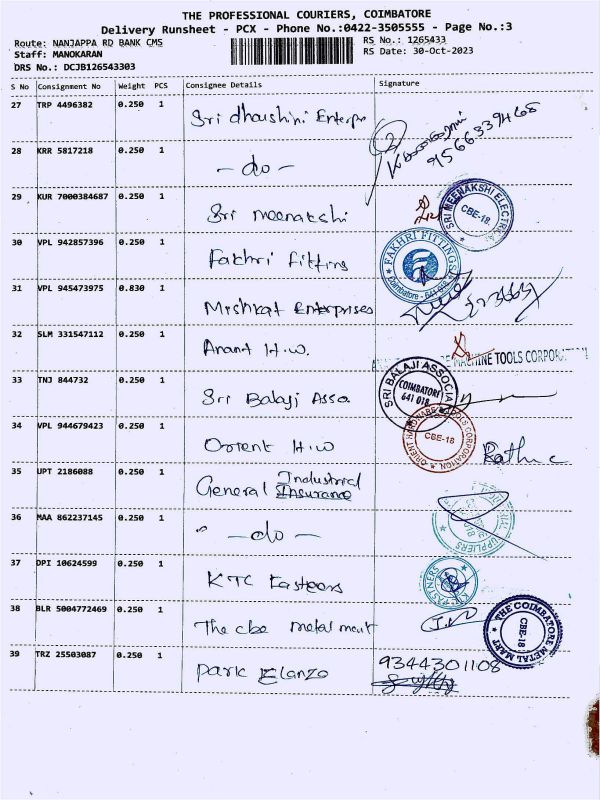 THE PROFESSIONAL COURIERS, COIMBATORE
Delivery Runsheet - PCX - Phone No.:0422-3505555 - Page No.:3
Route: NANJAPPA RD BANK CMS
Staff: MANOKARAN
DRS No.: DCJB126543303
RS No.: 1265433
RS Date: 30-Oct-2023
S No Consignment No Weight PCS Consignee Details Signature
27 TRP 4496382 0.250 1 Sri dhaushini Enterpr
9566339468
28 KRR 5817218 0.250 1 - do -
29 KUR 7000384687 0.250 1 Sri meenakshi
SRI MEENAKSHI ELECTRICAL CBE-18
30 VPL 942857396 0.250 1 Fakhri Fitting
FAKHRI FITTINGS Coimbatore - 641 018
31 VPL 945473975 0.830 1 Mishkat Enterprises
32 SLM 331547112 0.250 1 Anant H.W.
MACHINE TOOLS CORPORATION
33 TNJ 844732 0.250 1 Sri Balaji Asso
SRI BALAJI ASSOCIA COIMBATORE 641 018
34 VPL 944679423 0.250 1 Orient H.W
ORIENT HARDWARE & TOOLS CORPORATION CBE-18
35 UPT 2186088 0.250 1 General Industrial Insurance
36 MAA 862237145 0.250 1 " - do -
37 DPI 10624599 0.250 1 KTC Fasteers
FASTNERS
38 BLR 5004772469 0.250 1 The cbe metal mart
THE COIMBATORE METAL MART CBE-18
39 TRZ 25503087 0.250 1 Park Elanzo
9344301108